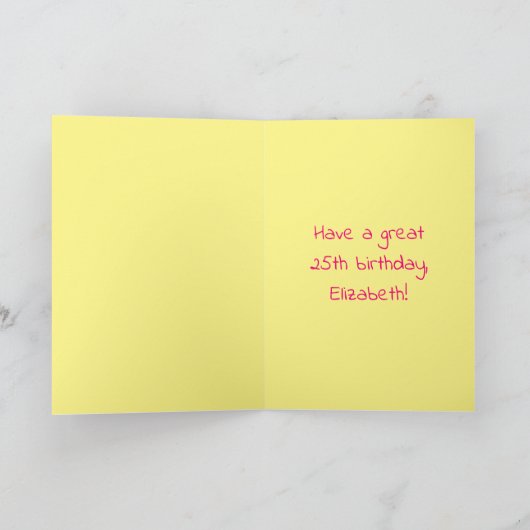 Have a great
25th birthday,
Elizabeth!